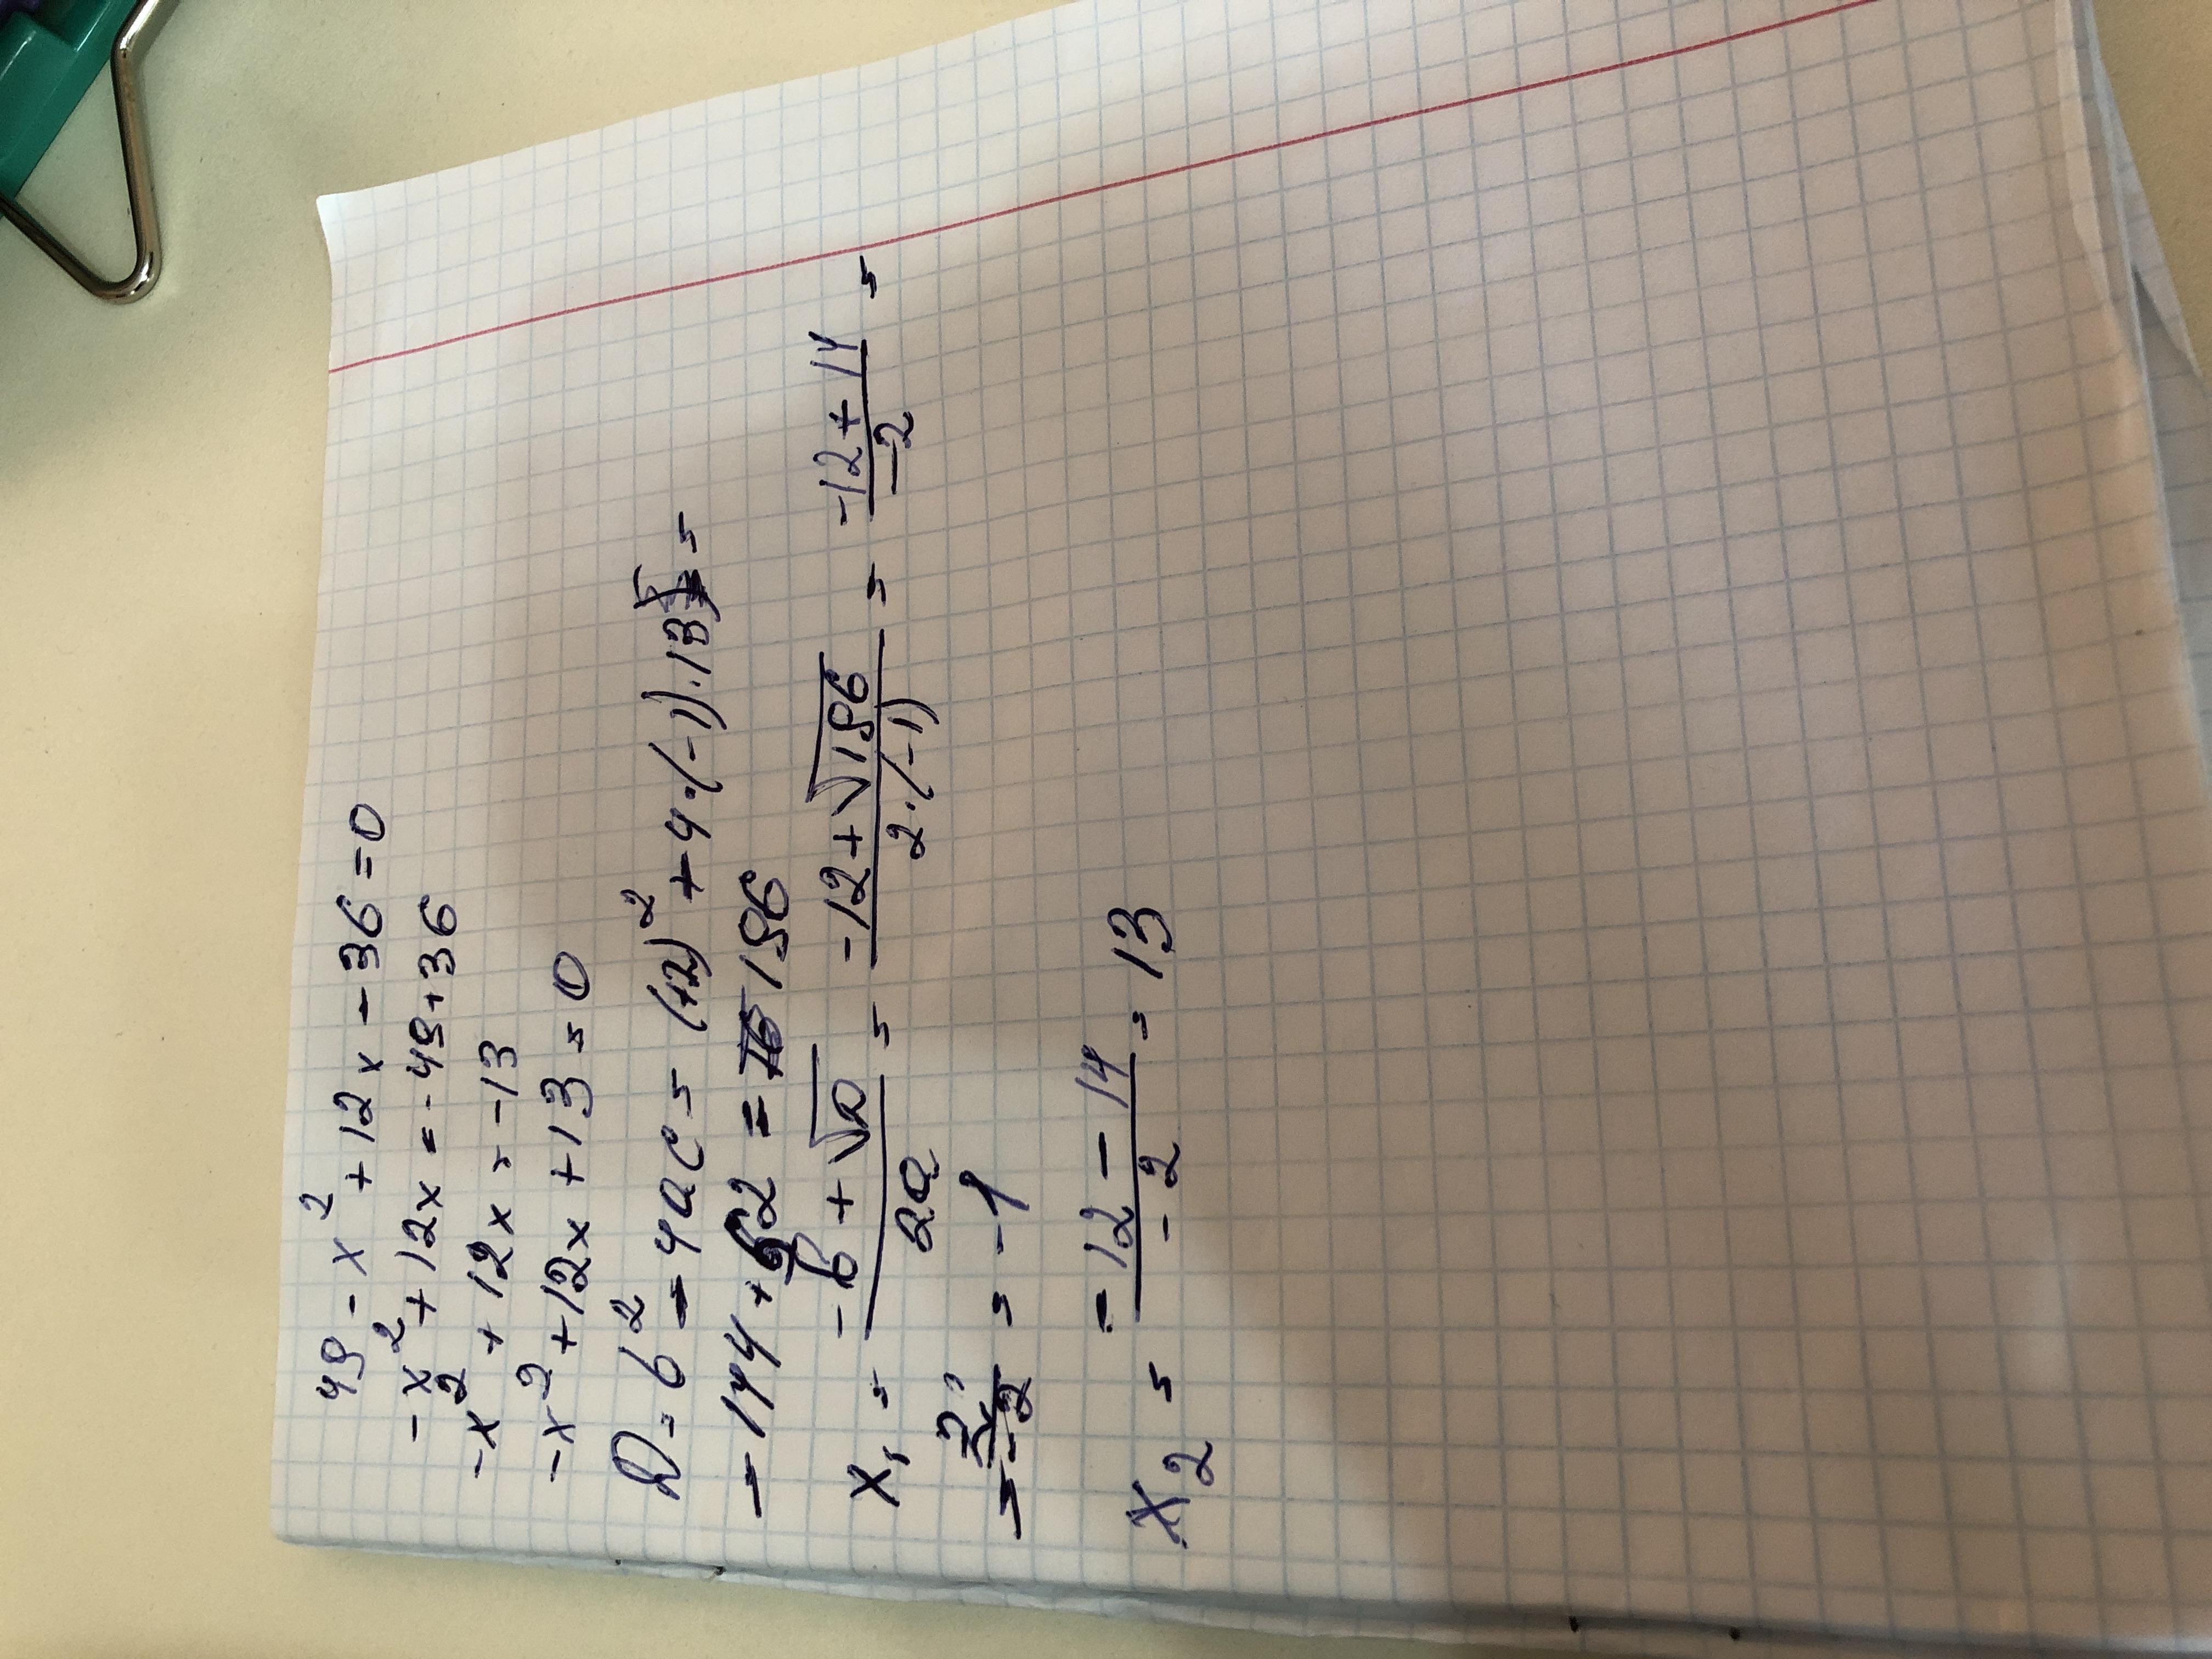 49 - x² + 12x - 36 = 0
-x² + 12x = -49 + 36
-x² + 12x = -13
-x² + 12x + 13 = 0
D = b² - 4ac = (12)² + 4·(-1)·13 =
= 144 + 52 = 196
x₁ = \frac{-b + √D}{2a} = \frac{-12 + √196}{2·(-1)} = \frac{-12 + 14}{-2} =
= \frac{2}{-2} = -1
x₂ = \frac{-12 - 14}{-2} = 13